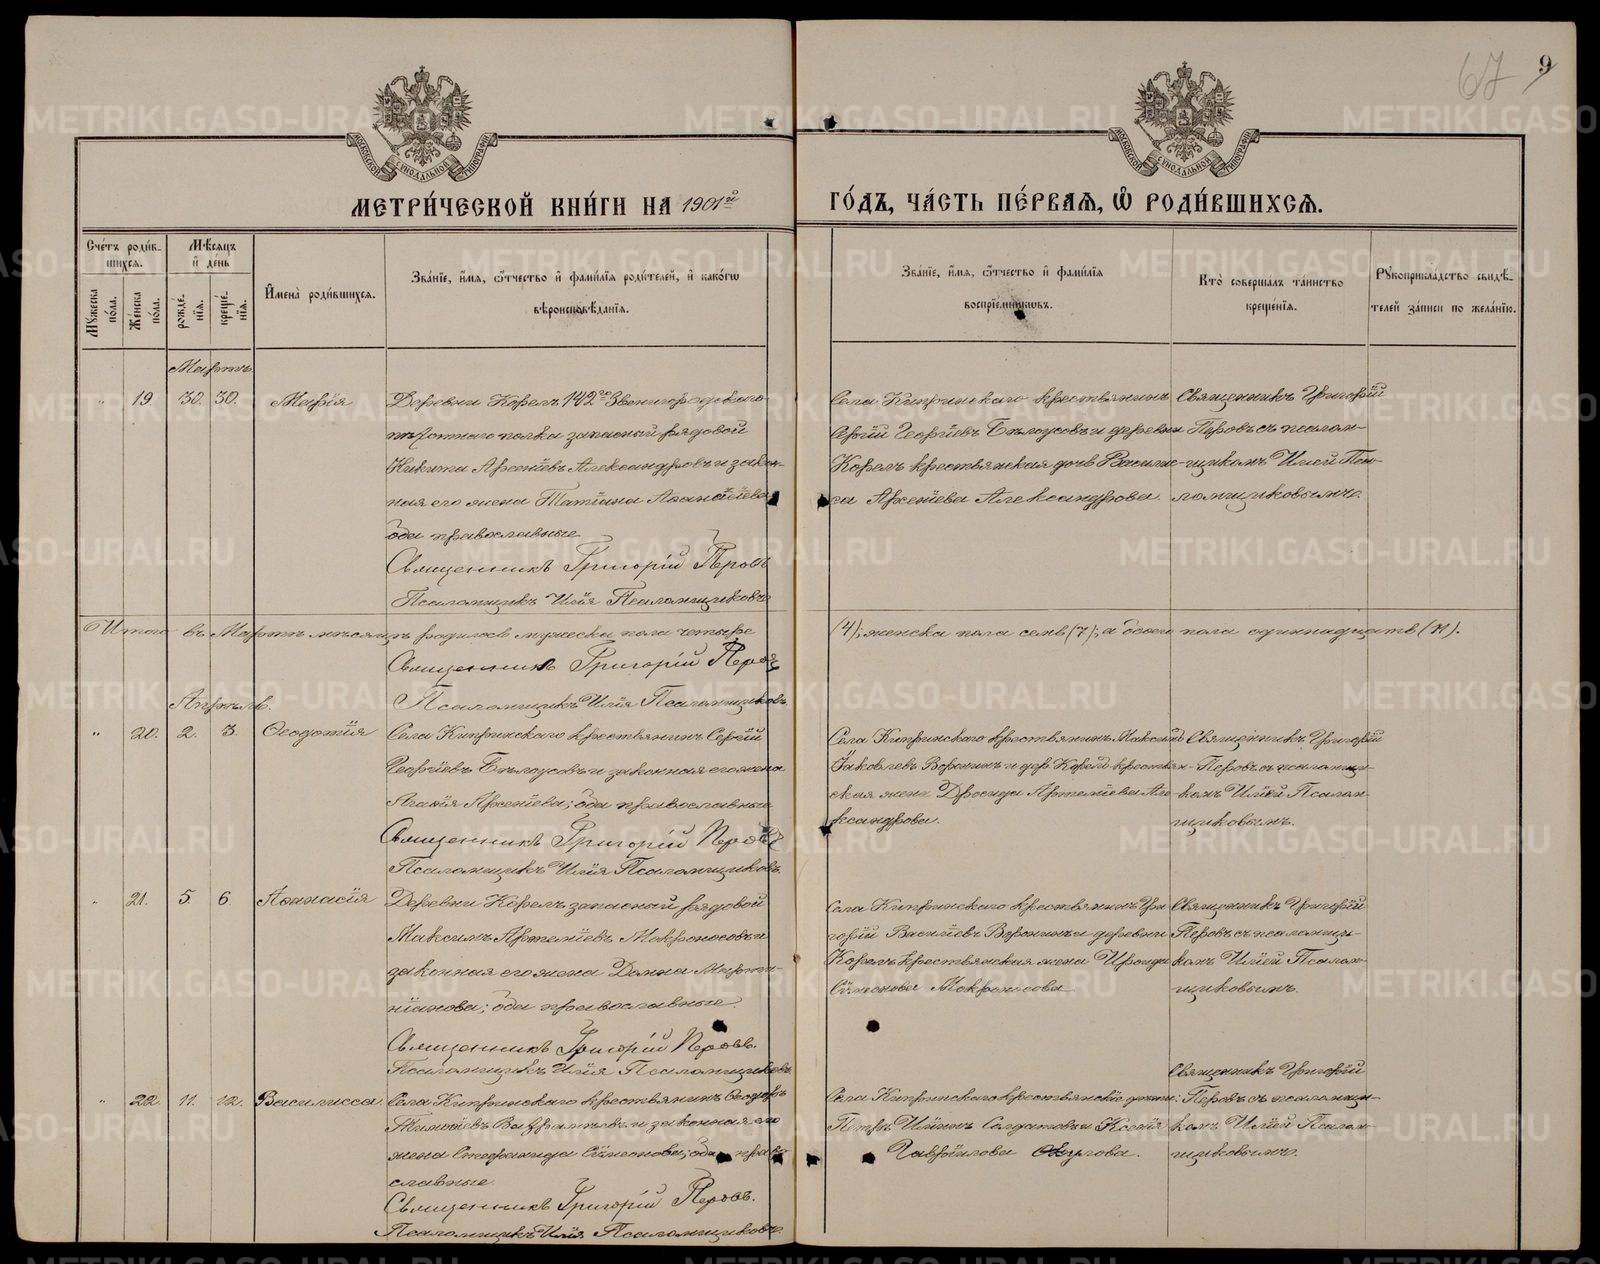 67 9
МОСКОВСКОЙ СѴНОДАЛЬНОЙ ТИПОГРАФІИ
МОСКОВСКОЙ СѴНОДАЛЬНОЙ ТИПОГРАФІИ
МЕТРИ́ЧЕСКОЙ КНИ́ГИ НА 1901й
ГО́ДЪ, ЧА́СТЬ ПЕ́РВАѦ, Ѽ РОДИ́ВШИХСѦ.
Сче́тъ роди́в-
шихсѧ.
Мѣ́сѧцъ
и҆ де́нь
Мꙋ́жеска
по́ла.
Же́нска
по́ла.
рожде́-
нїѧ.
креще́-
нїѧ.
И҆мена̀ роди́вшихсѧ.
Зва́нїе, и҆́мѧ, ѻ҆́тчество и҆ фами́лїѧ роди́телей, и҆ како́гѡ
вѣроисповѣ́данїѧ.
Зва́нїе, и҆́мѧ, ѻ҆́тчество и҆ фами́лїѧ
воспрїе́мникѡвъ.
Кто̀ соверша́лъ та́инство
креще́нїѧ.
Рꙋкоприкла́дство свидѣ́-
телей за́писи по жела́нїю.
Мартъ.
" 19. 30. 30. Марія
Деревни Корелъ 142го Звенигородскаго
пѣхотнаго полка запасный рядовой
Никита Арсеніевъ Александровъ и закон-
ная его жена Татіана Аѳанасіева
оба православные
Священникъ Григорій Перовъ
Псаломщикъ Илія Псаломщиковъ
Села Кипринскаго крестьянинъ
Сергій Георгіевъ Бѣлоусовъ и деревни
Корелъ крестьянская дочь Васили-
са Арсеніева Александрова.
Священникъ Григорій
Перовъ съ псалом-
щикомъ Иліей Пса-
ломщиковымъ.
Итого въ Мартѣ мѣсяцѣ родилось мужеска пола четыре
(4); женска пола семь (7); а обоего пола одиннадцать (11).
Священникъ Григорій Перовъ
Псаломщикъ Илія Псаломщиковъ.
Апрѣль.
" 20. 2. 3. Ѳеодотія
Села Кипринскаго крестьянинъ Сергій
Георгіевъ Бѣлоусовъ и законная его жена
Агаѳія Арсеніева; оба православные
Священникъ Григорій Перовъ
Псаломщикъ Илія Псаломщиковъ.
Села Кипринскаго крестьянинъ Максимъ
Іаковлевъ Воронинъ и дер. Корелъ крестьян-
ская жена Дросида Артеміева Але-
ксандрова.
Священникъ Григорій
Перовъ съ псаломщи-
комъ Иліей Псалом-
щиковымъ.
" 21. 5. 6. Аѳанасія
Деревни Корелъ запасный рядовой
Максимъ Артеміевъ Мокроносовъ и
законная его жена Домна Марти-
ніанова; оба православные
Священникъ Григорій Перовъ.
Псаломщикъ Илія Псаломщиковъ
Села Кипринскаго крестьянинъ Гри
горій Василіевъ Воронинъ и деревни
Корелъ крестьянская жена Ироида
Сѵмеонова Мокроносова
Священникъ Григорій
Перовъ съ псаломщи-
комъ Иліей Псалом-
щиковымъ.
" 22. 11. 12. Василисса
Села Кипринскаго крестьянинъ Ѳеодоръ
Тимоѳіевъ и законная его
жена Стефанида Сѵмеонова; оба право
славные
Священникъ Григорій Перовъ.
Псаломщикъ Илія Псаломщиковъ.
Села Кипринскаго крестьянскіе дѣти:
Петръ Солдатовъ и Ксенія
Гавріилова
Священникъ Григорій
Перовъ съ псаломщи-
комъ Иліей Псалом-
щиковымъ.
METRIKI.GASO-URAL.RU